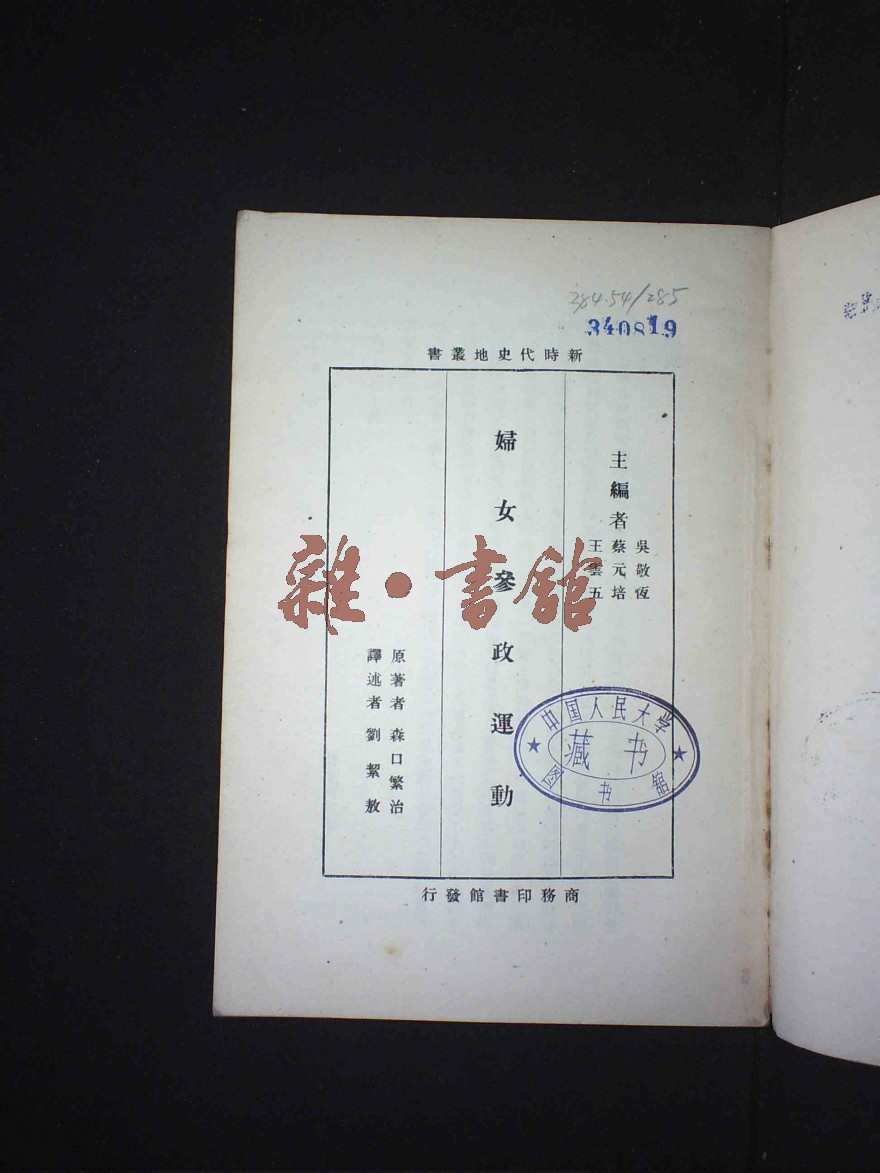 384.54/285
340819
新時代史地叢書
主編者
吳敬恆
蔡元培
王雲五
婦女參政運動
原著者 森口繁治
譯述者 劉絜敖
商務印書館發行
中国人民大学
藏书
图书馆
雜·書館